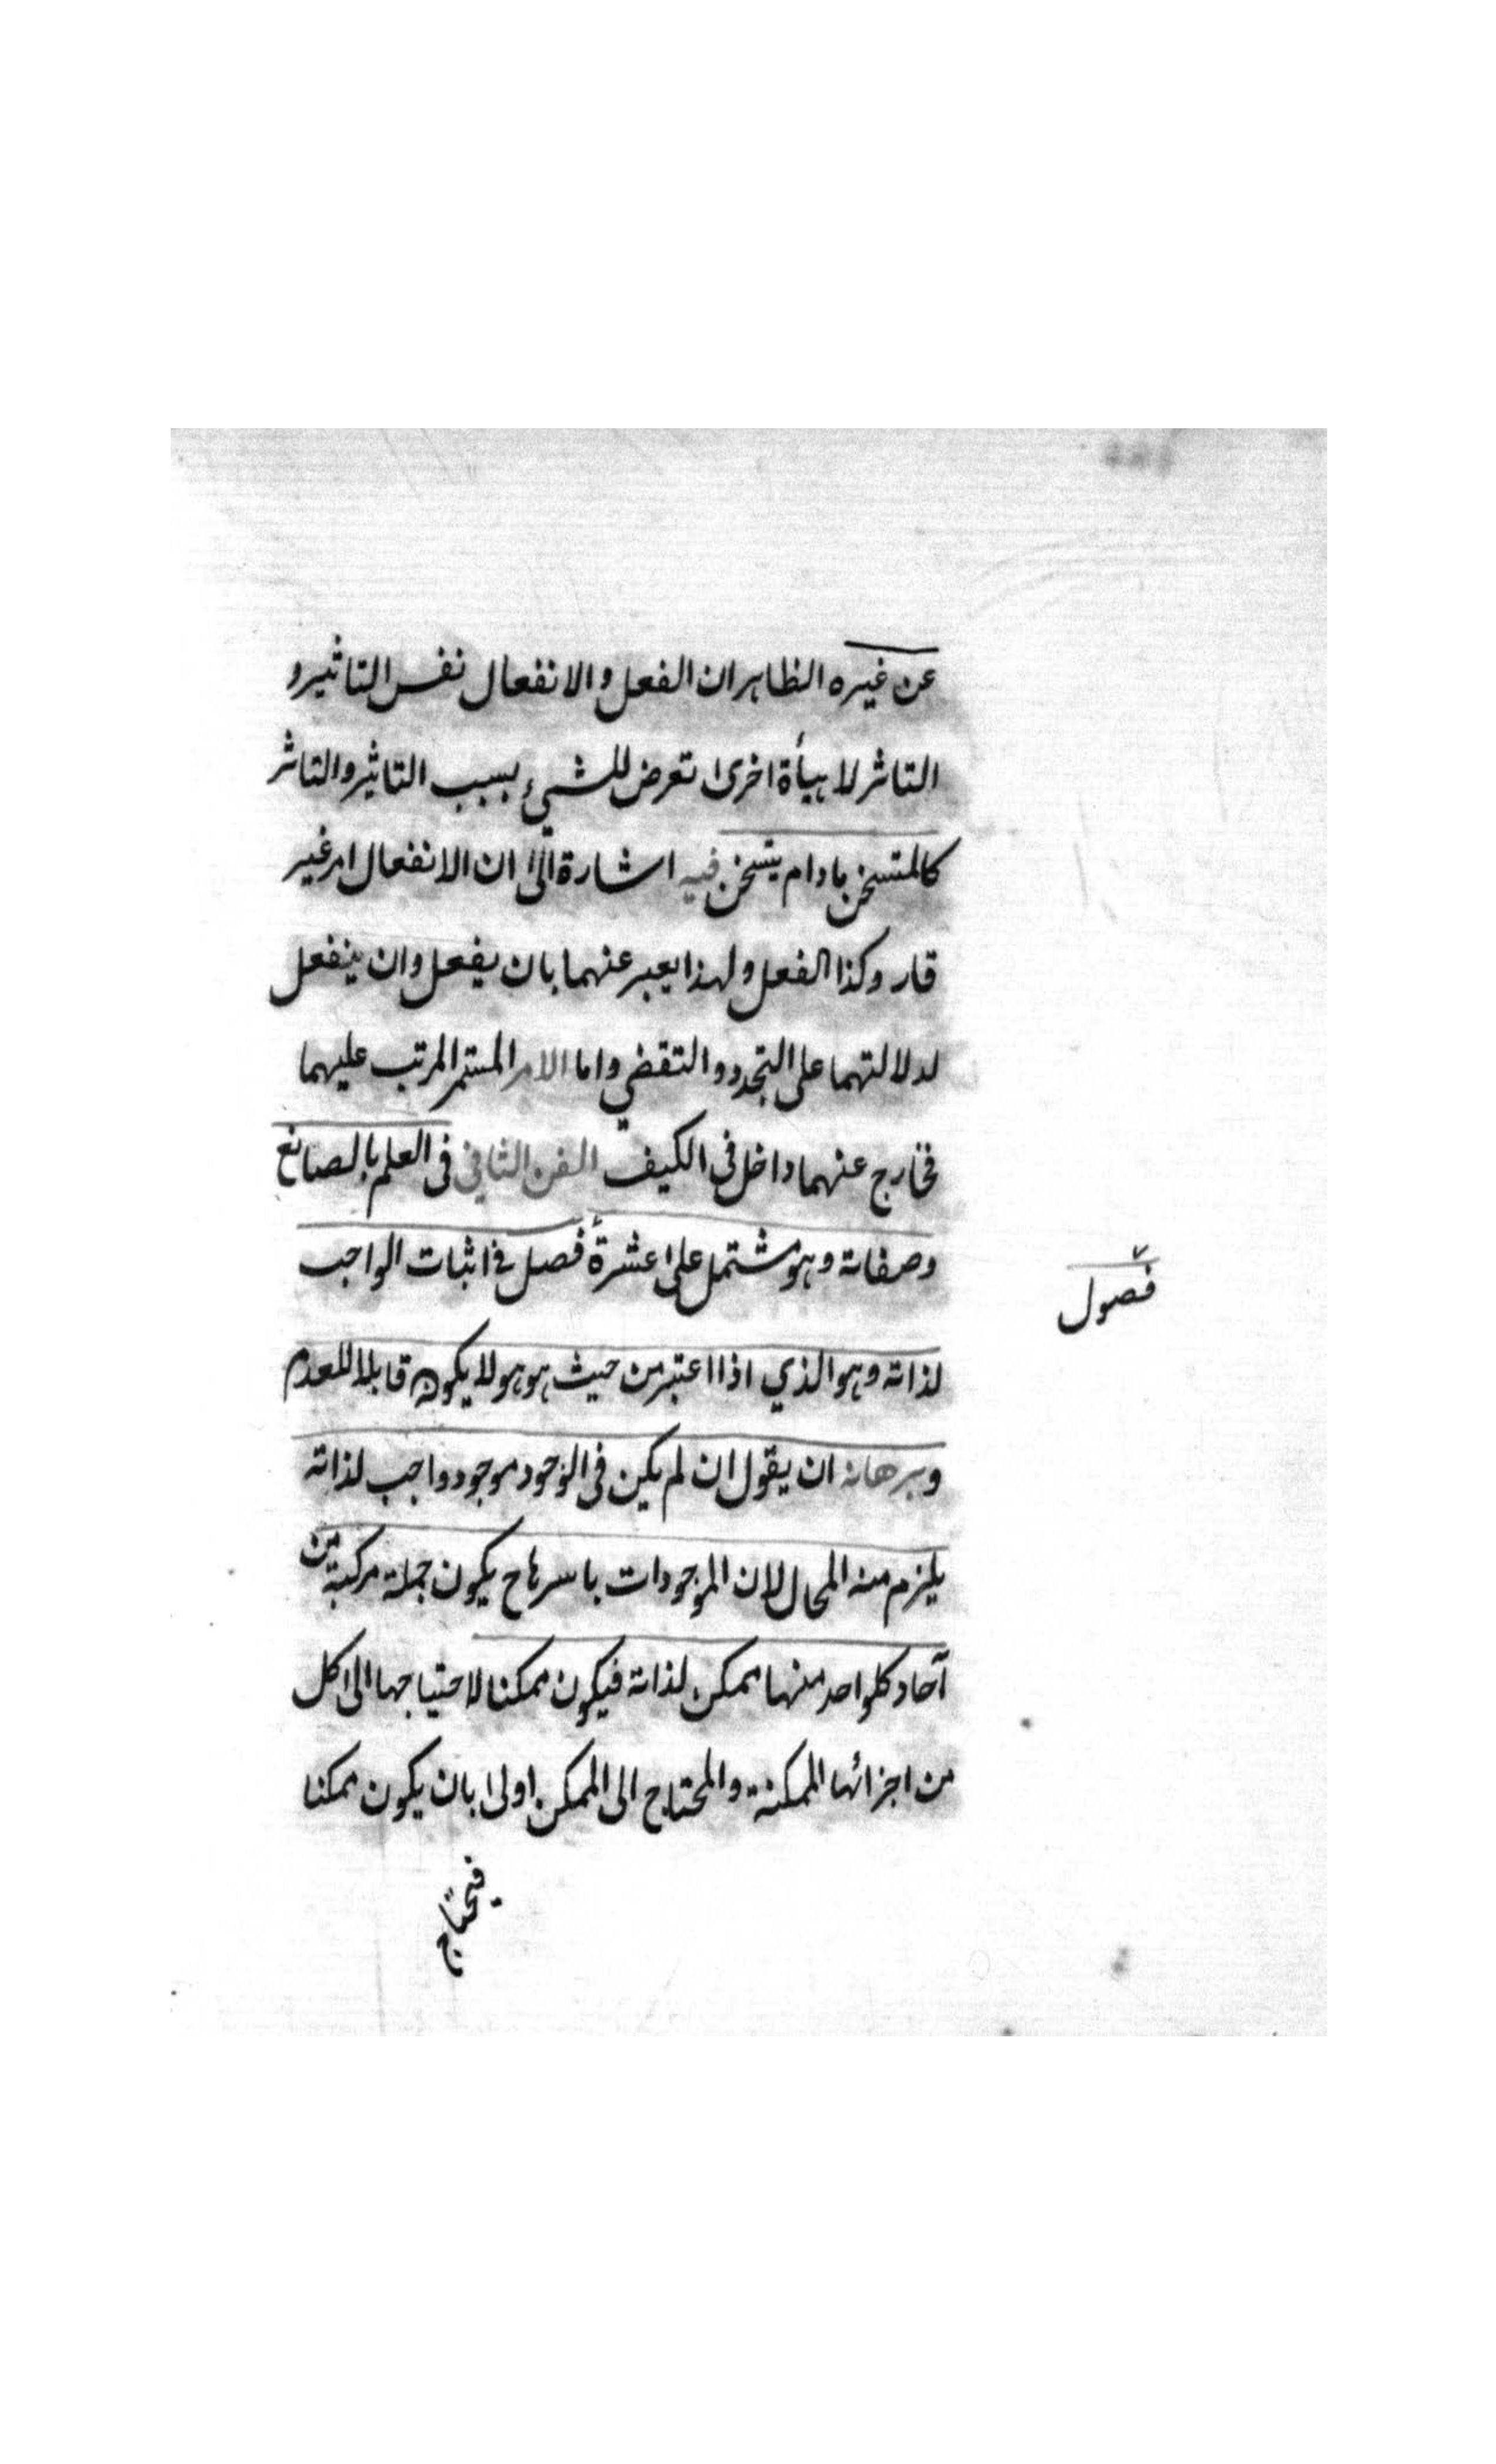 عن غيره الظاهر ان الفعل والانفعال نفس التاثير و
التاثر لا هيأة اخرى تعرض للشيء بسبب التاثير والتاثر
كالمتسخن مادام يتسخن فيه اشارة الى ان الانفعال امر غير
قار وكذا الفعل ولهذا يعبر عنهما بان يفعل وان ينفعل
لدلالتهما على التجدد والتقضي واما الامر المستمر المرتب عليهما
فخارج عنهما داخل في الكيف الفن الثاني في العلم بالصانع
وصفاته وهو مشتمل على عشرة فصل في اثبات الواجب
فصول
لذاته وهو الذي اذا اعتبر من حيث هو هو لا يكون قابلا للعدم
وبرهانه ان يقول ان لم يكن في الوجود موجود واجب لذاته
يلزم منه المحال لان الموجودات باسرها ح يكون جملة مركبة من
آحاد كلواحد منها ممكن لذاته فيكون ممكنا لاحتياجها الى كل
من اجزائها الممكنة والمحتاج الى الممكن اولى بان يكون ممكنا
فيحتاج